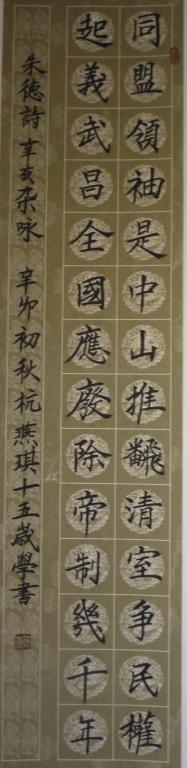 同盟領袖是中山推飜清室争民權
起義武昌全國應廢除帝制幾千年
朱德詩辛亥杂咏 辛卯初秋杭燕琪十五歲學書